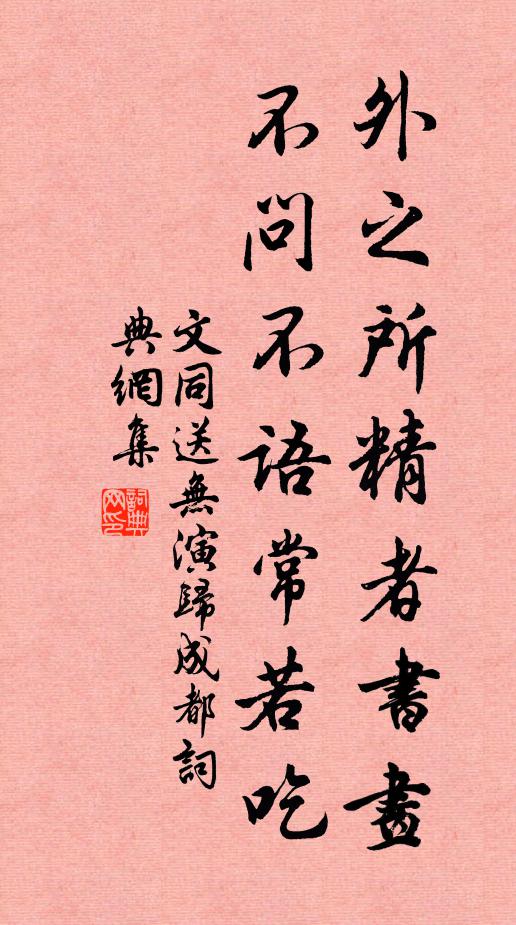 外之所精者書畫
不問不語常若吃
文同送無演歸成都詞
典網集
詞典
网印